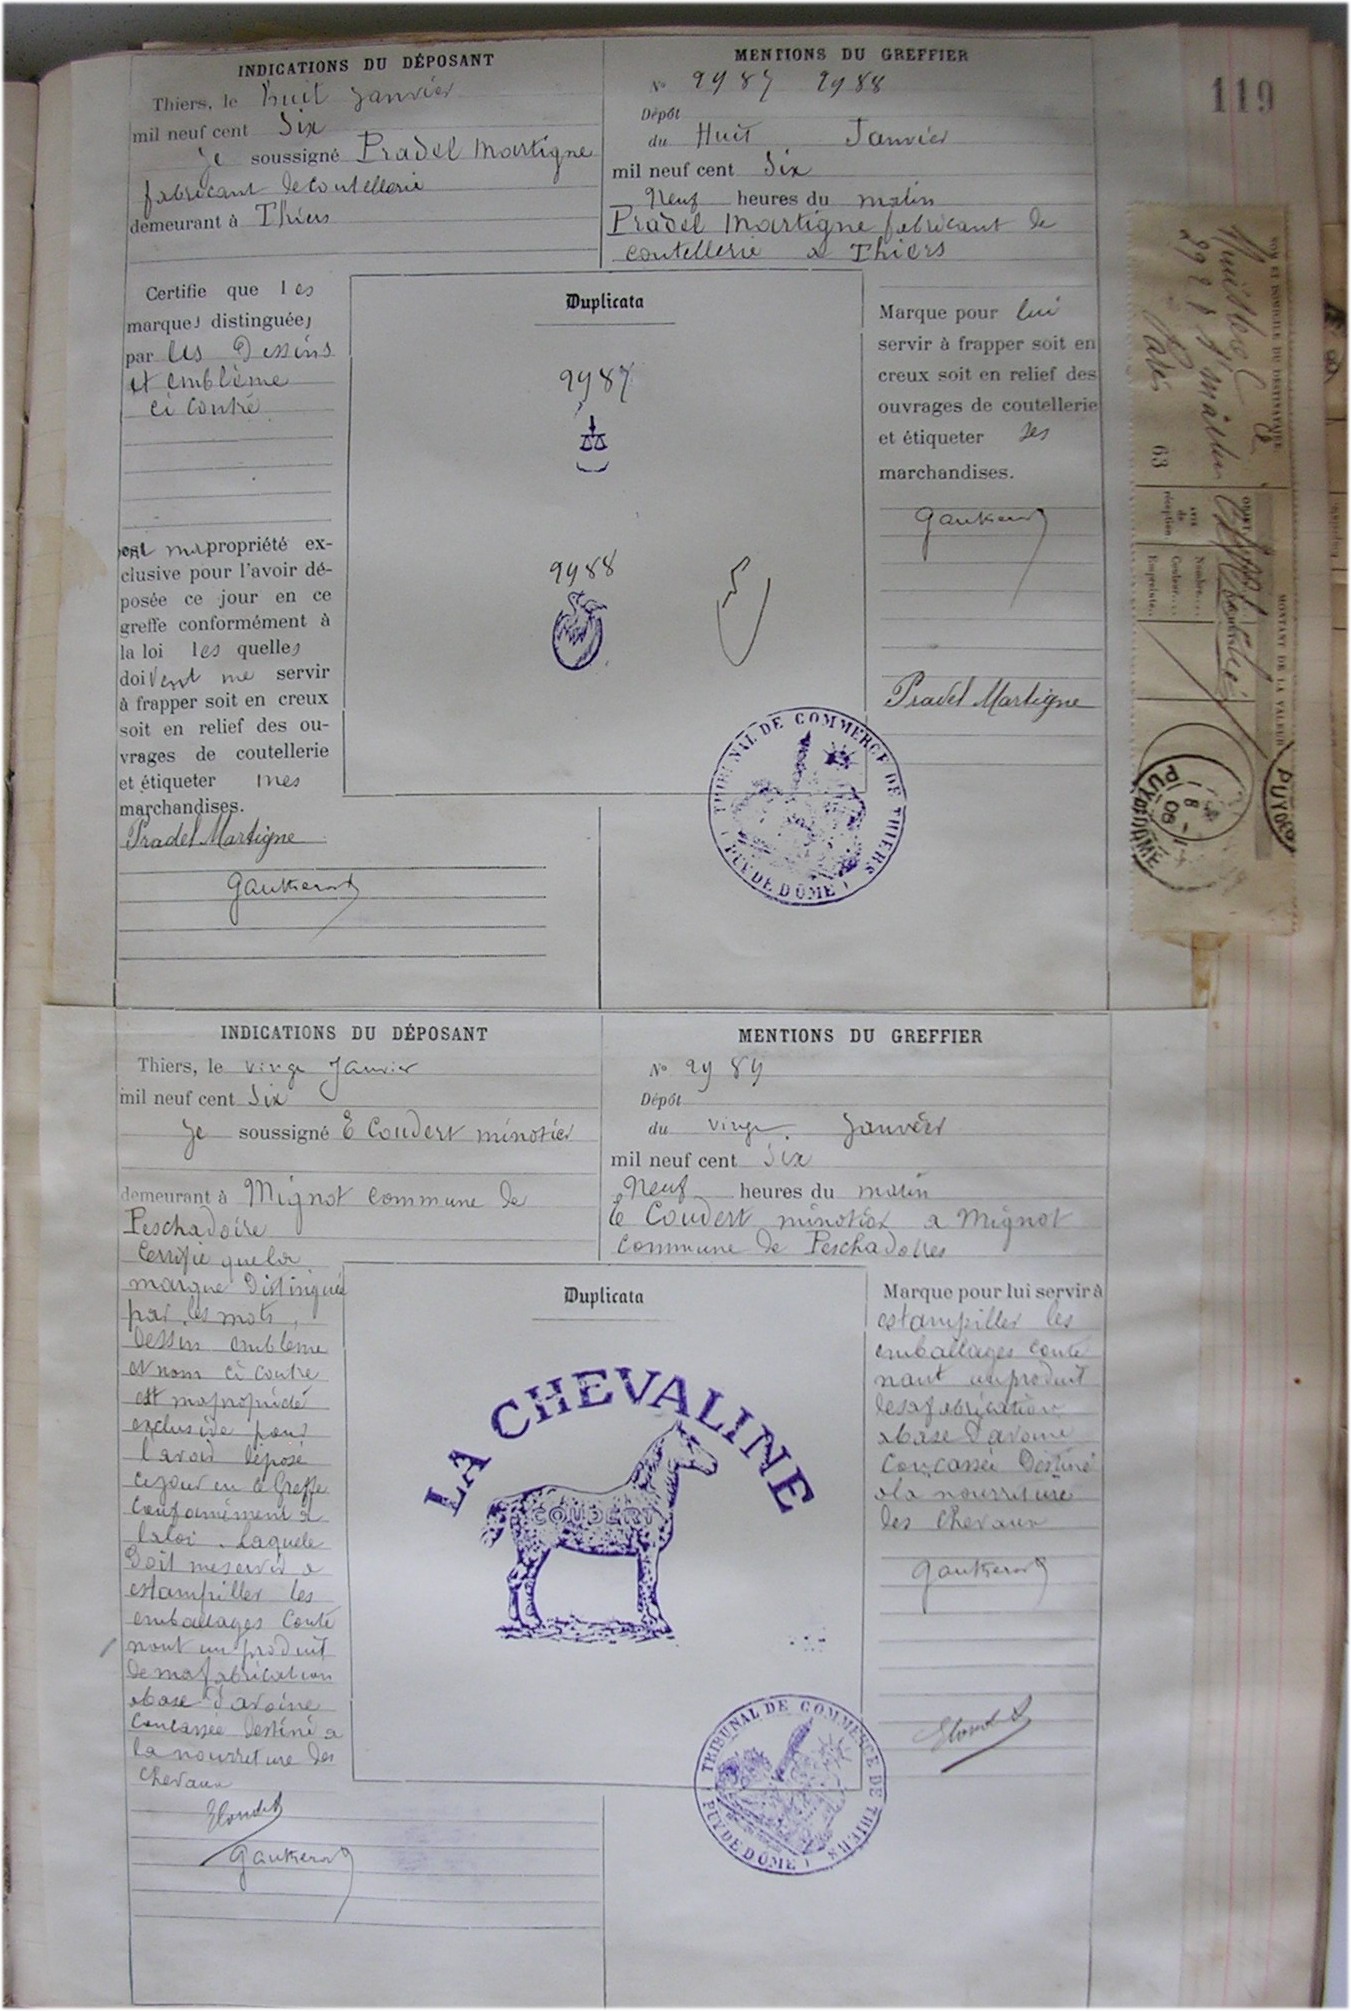 119
INDICATIONS DU DÉPOSANT
Thiers, le huit Janvier
mil neuf cent Six
Je soussigné Pradel Martigne
fabricant de coutellerie
demeurant à Thiers
MENTIONS DU GREFFIER
No 2987 2988
Dépôt
du Huit Janvier
mil neuf cent Six
Neuf heures du matin
Pradel Martigne fabricant de
coutellerie a Thiers
Certifie que les
marques distinguées
par les Dessins
et emblème
ci contre
sont ma propriété ex-
clusive pour l'avoir dé-
posée ce jour en ce
greffe conformément à
la loi les quelles
doivent me servir
à frapper soit en creux
soit en relief des ou-
vrages de coutellerie
et étiqueter mes
marchandises.
Pradel Martigne
Duplicata
2987
2988
Marque pour lui
servir à frapper soit en
creux soit en relief des
ouvrages de coutellerie
et étiqueter ses
marchandises.
Pradel Martigne
TRIBUNAL DE COMMERCE DE THIERS
PUY DE DÔME
NOM ET DOMICILE DU DESTINATAIRE
Paris
63
AVIS
de
réception
Nombre
Couleur
Empreinte
MONTANT DE LA VALEUR
PUY DE DOME
INDICATIONS DU DÉPOSANT
Thiers, le vingt Janvier
mil neuf cent Six
Je soussigné E Coudert minotier
demeurant à Mignot commune de
Peschadoire
MENTIONS DU GREFFIER
No 2989
Dépôt
du vingt Janvier
mil neuf cent Six
Neuf heures du matin
E Coudert minotier a Mignot
commune de Peschadoires
Certifie que la
marque Distinguée
par les mots,
dessin emblème
et nom ci contre
est ma propriété
exclusive pour
l'avoir déposé
ce jour en ce Greffe
conformément a
la loi laquelle
Doit me servir a
estampiller les
emballages conte
nant un produit
de ma fabrication
a base d'avoine
concassée destiné a
la nourriture des
chevaux
Duplicata
LA CHEVALINE
COUDERT
Marque pour lui servir à
estampiller les
emballages conte
nant un produit
de sa fabrication
a base d'avoine
concassée Destiné
a la nourriture
des chevaux
TRIBUNAL DE COMMERCE DE THIERS
PUY DE DÔME